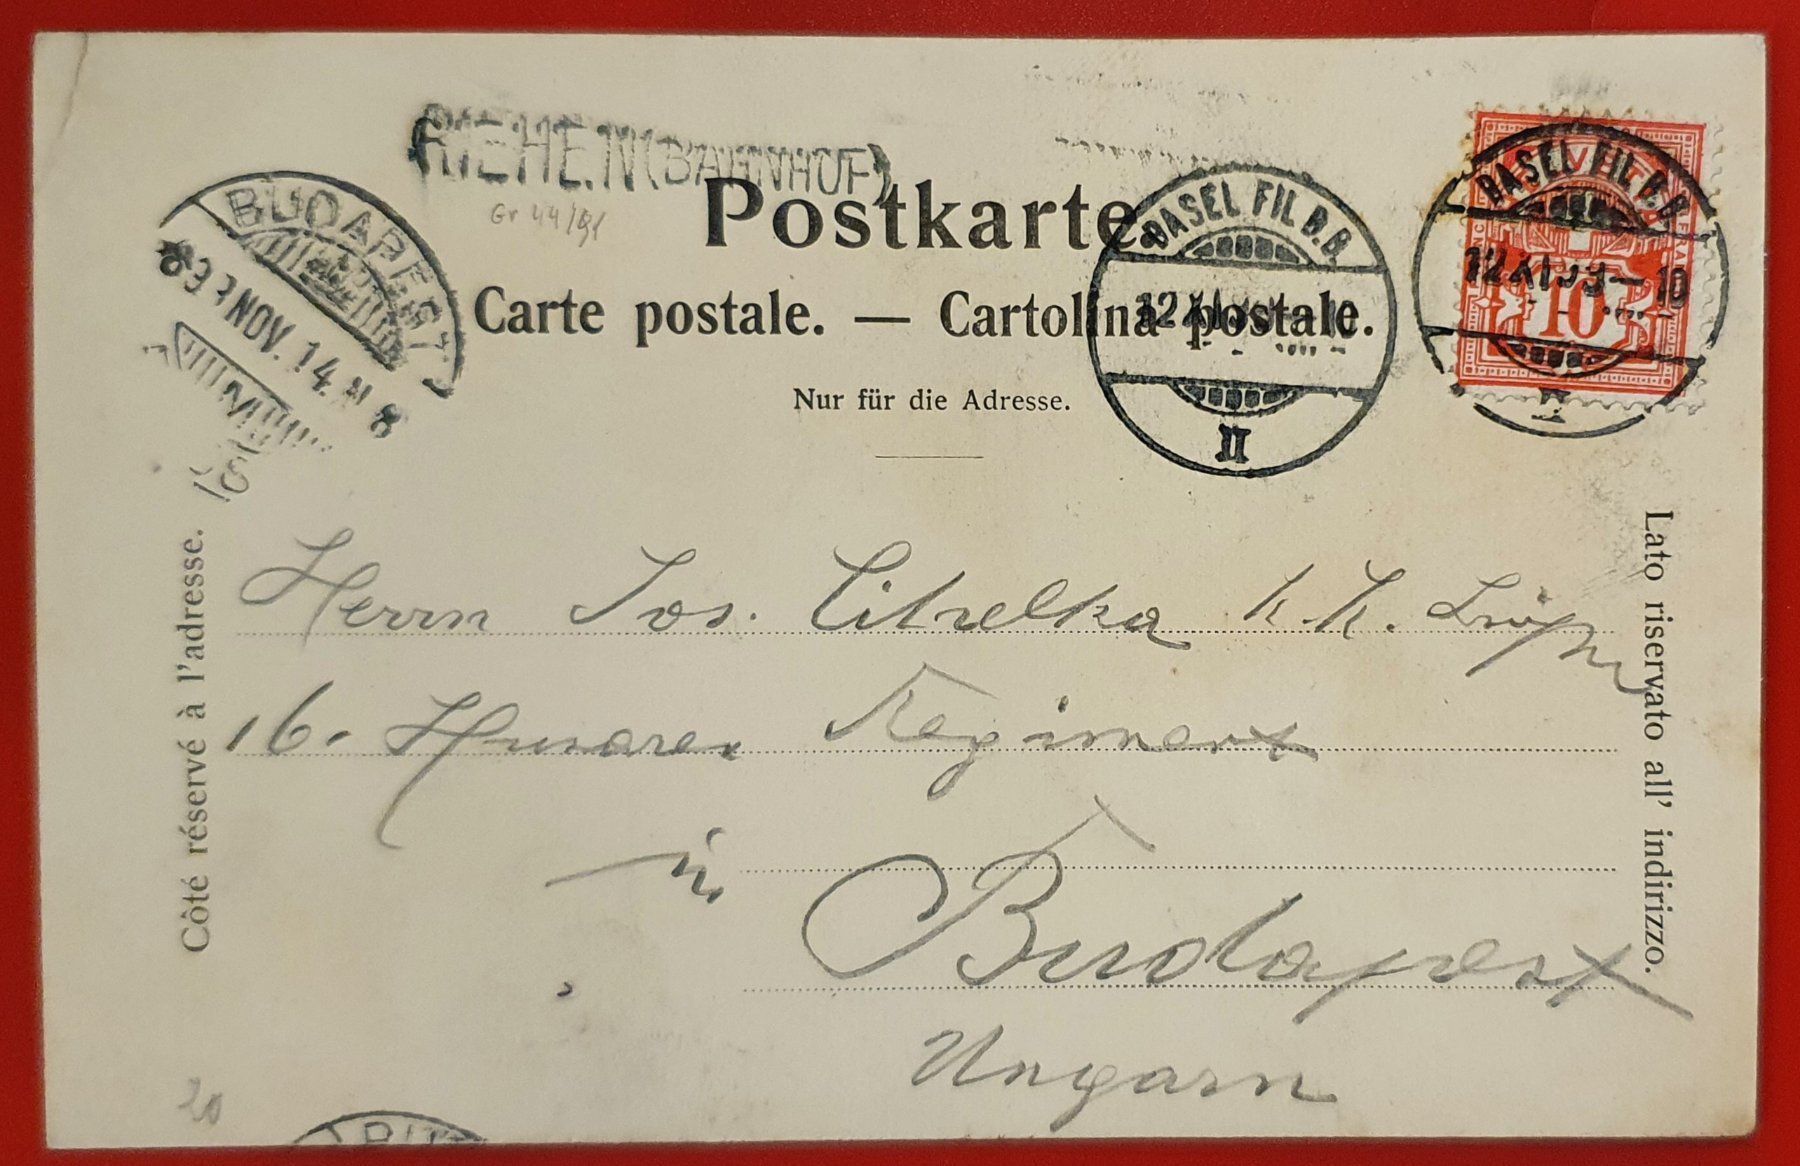 RIEHEN (BAHNHOF)
Gr 44/91
BUDAPEST
NOV. 14. N 8
Postkarte.
Carte postale. — Cartolina postale.
Nur für die Adresse.
BASEL FIL. B.B.
12 XI 03 — 10
II
BASEL FIL. B.B.
12 XI 03 — 10
10
Côté réservé à l'adresse.
Lato riservato all' indirizzo.
Herrn Jos. k. k.
16. Husaren Regiment
in Budapest
Ungarn
20